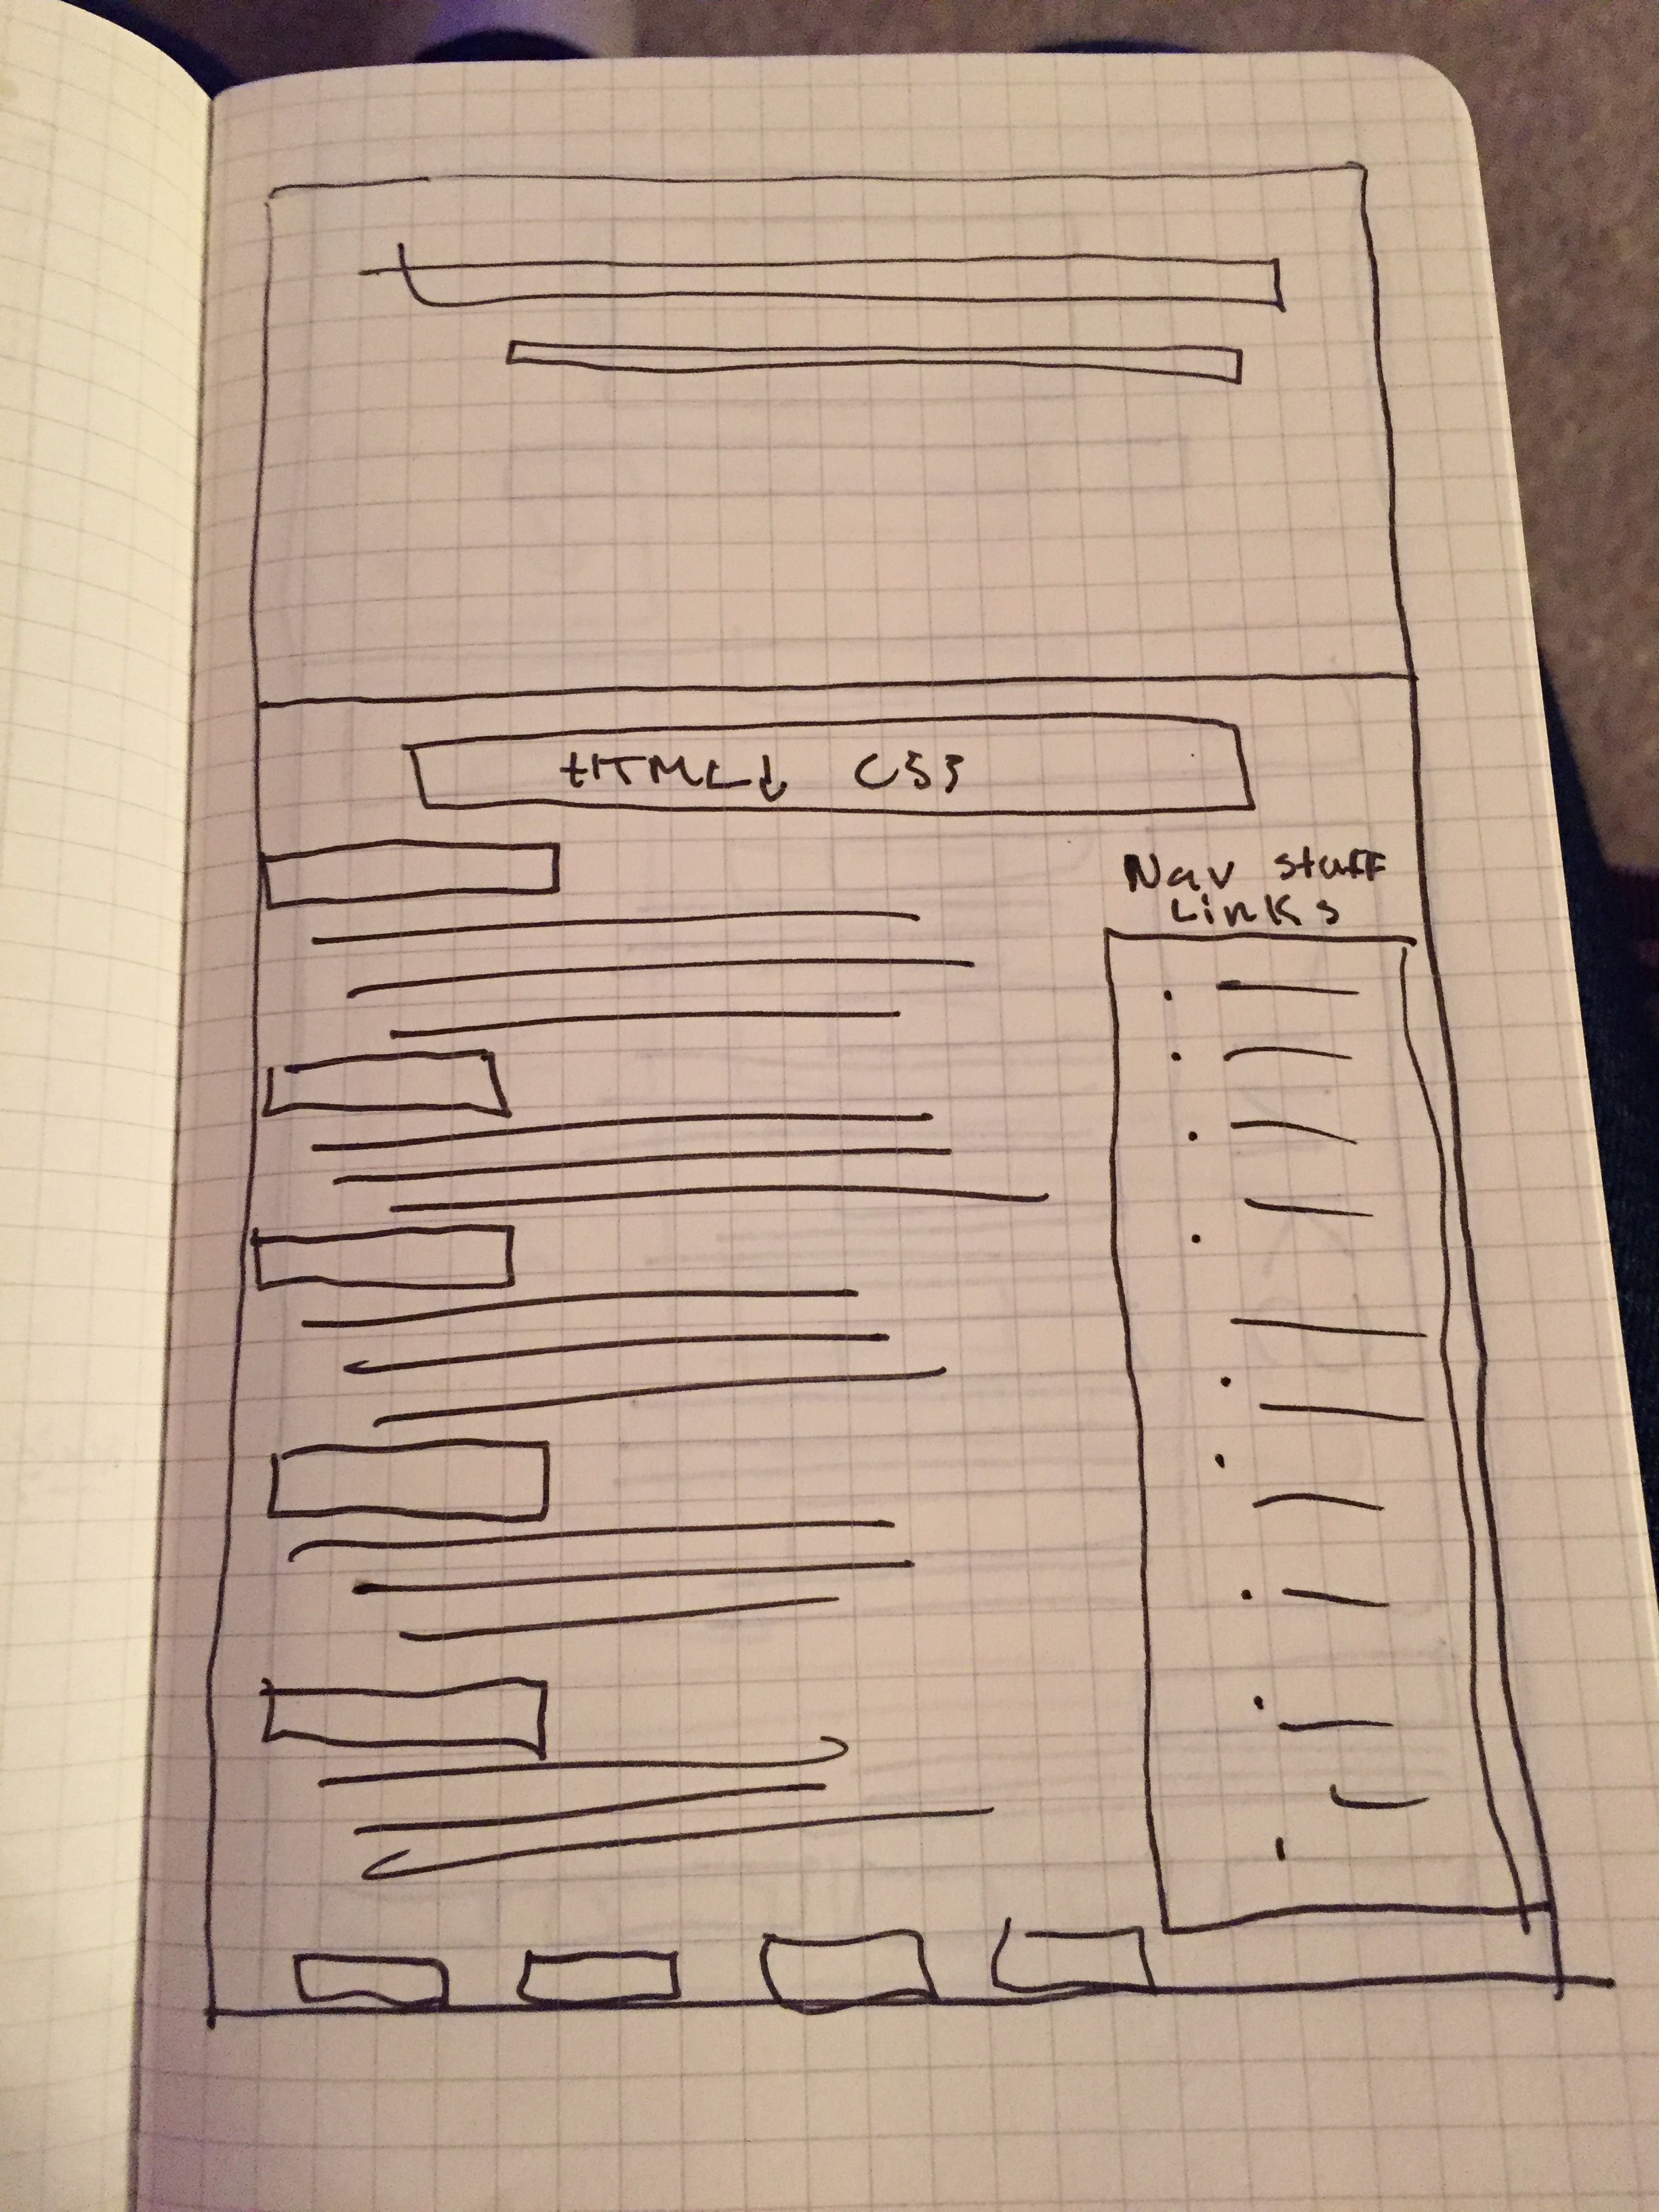 HTML & CSS
Nav stuff
Links